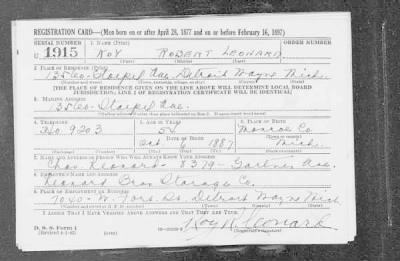 REGISTRATION CARD—(Men born on or after April 28, 1877 and on or before February 16, 1897)
SERIAL NUMBER 1. NAME (Print) ORDER NUMBER
U 1915 ROY ROBERT LEONARD
(First) (Middle) (Last)
2. PLACE OF RESIDENCE (Print)
Ave. Detroit Wayne Mich.
[THE PLACE OF RESIDENCE GIVEN ON THE LINE ABOVE WILL DETERMINE LOCAL BOARD
JURISDICTION; LINE 2 OF REGISTRATION CERTIFICATE WILL BE IDENTICAL]
3. MAILING ADDRESS
Ave.
4. TELEPHONE 5. AGE IN YEARS 6. PLACE OF BIRTH
Ho. 9203 54 Monroe Co.
DATE OF BIRTH
Oct. 6 1887 Mich.
7. NAME AND ADDRESS OF PERSON WHO WILL ALWAYS KNOW YOUR ADDRESS
Chas. Leonard - 8379 - Ave.
8. EMPLOYER'S NAME AND ADDRESS
Leonard Bros Storage Co.
9. PLACE OF EMPLOYMENT OR BUSINESS
7040 - W. Fort St. Detroit Wayne Mich
I AFFIRM THAT I HAVE VERIFIED ABOVE ANSWERS AND THAT THEY ARE TRUE.
D. S. S. Form 1
Roy R. Leonard